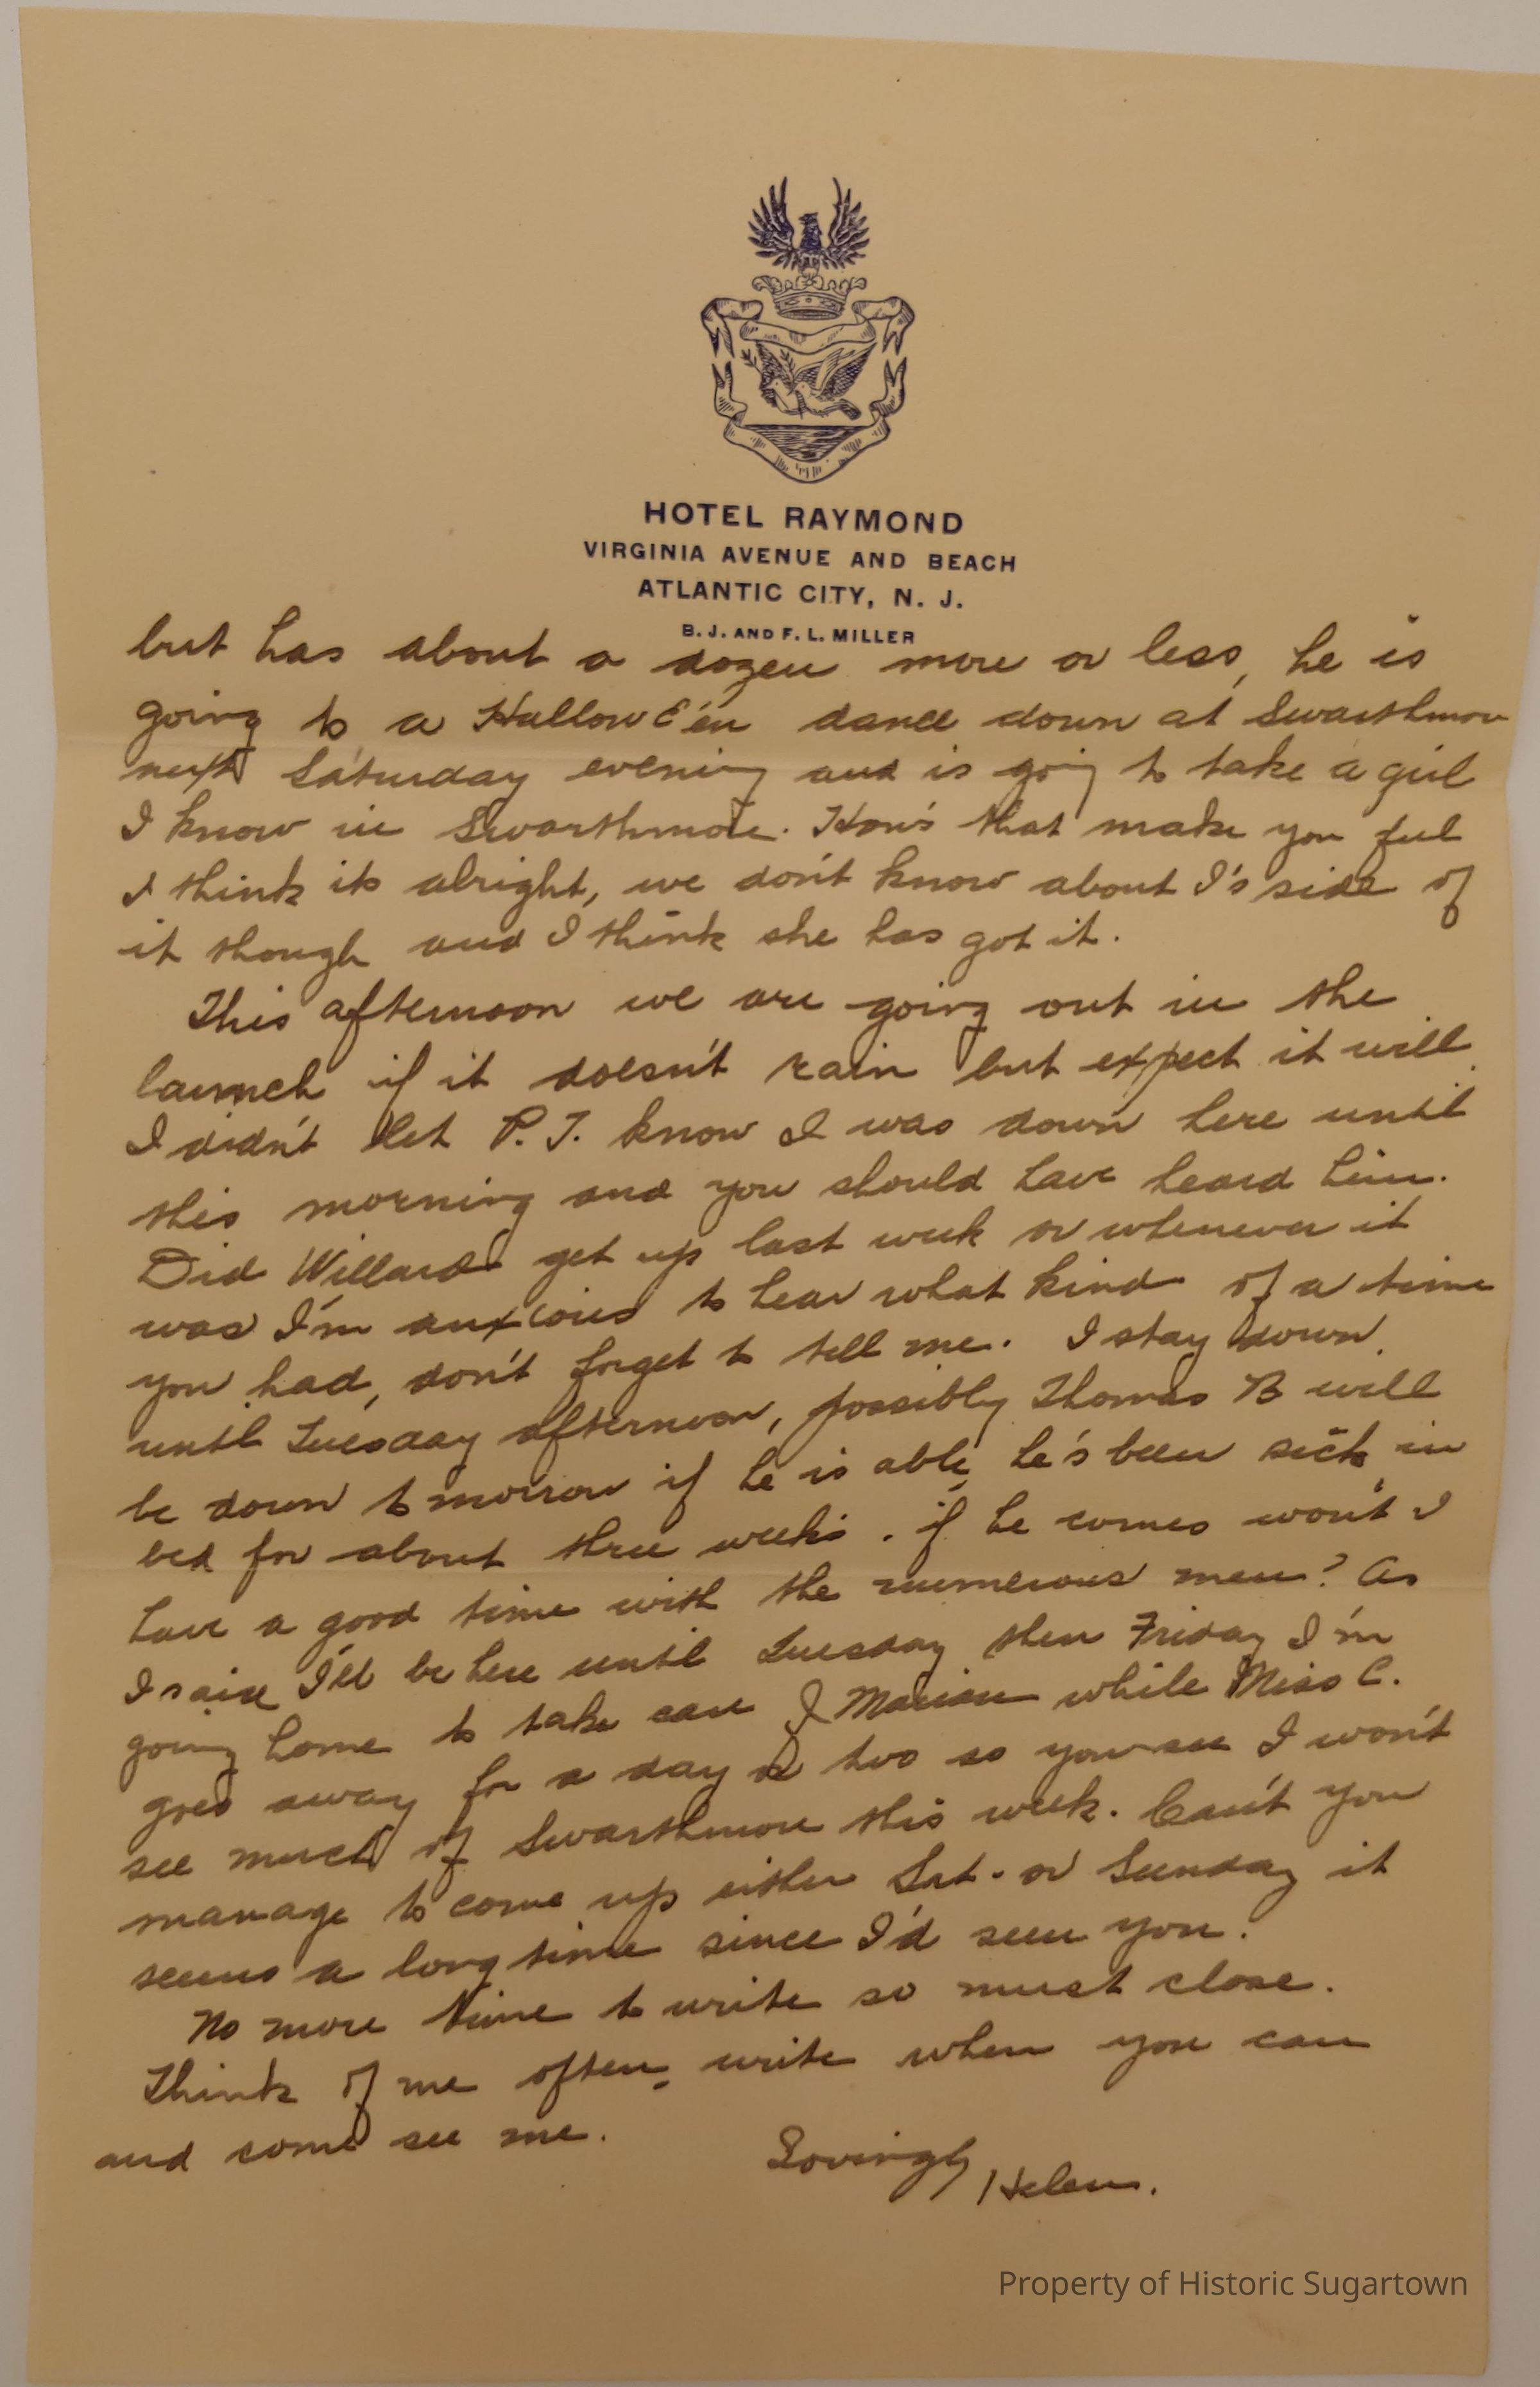 HOTEL RAYMOND
VIRGINIA AVENUE AND BEACH
ATLANTIC CITY, N. J.
B. J. AND F. L. MILLER
but has about a dozen more or less, he is
going to a Hallow E'en dance down at Swarthmore
next Saturday evening and is going to take a girl
I know in Swarthmore. How's that make you feel
I think its alright, we don't know about I's side of
it though and I think she has got it.
This afternoon we are going out in the
launch if it doesn't rain but expect it will
I didn't let P. T. know I was down here until
this morning and you should have heard him.
Did Willard get up last week or whenever it
was I'm anxious to hear what kind of a time
you had, don't forget to tell me. I stay down
until Tuesday afternoon, possibly Thomas B will
be down tomorrow if he is able, he's been sick in
bed for about three weeks. if he comes won't I
have a good time with the numerous men? As
I said I'll be here until Tuesday then Friday I'm
going home to take care of Marian while Miss C.
goes away for a day or two so you see I won't
see much of Swarthmore this week. Can't you
manage to come up either Sat. or Sunday it
seems a long time since I'd seen you.
No more time to write so must close.
Think of me often, write when you can
and come see me.
Lovingly
Helen.
Property of Historic Sugartown